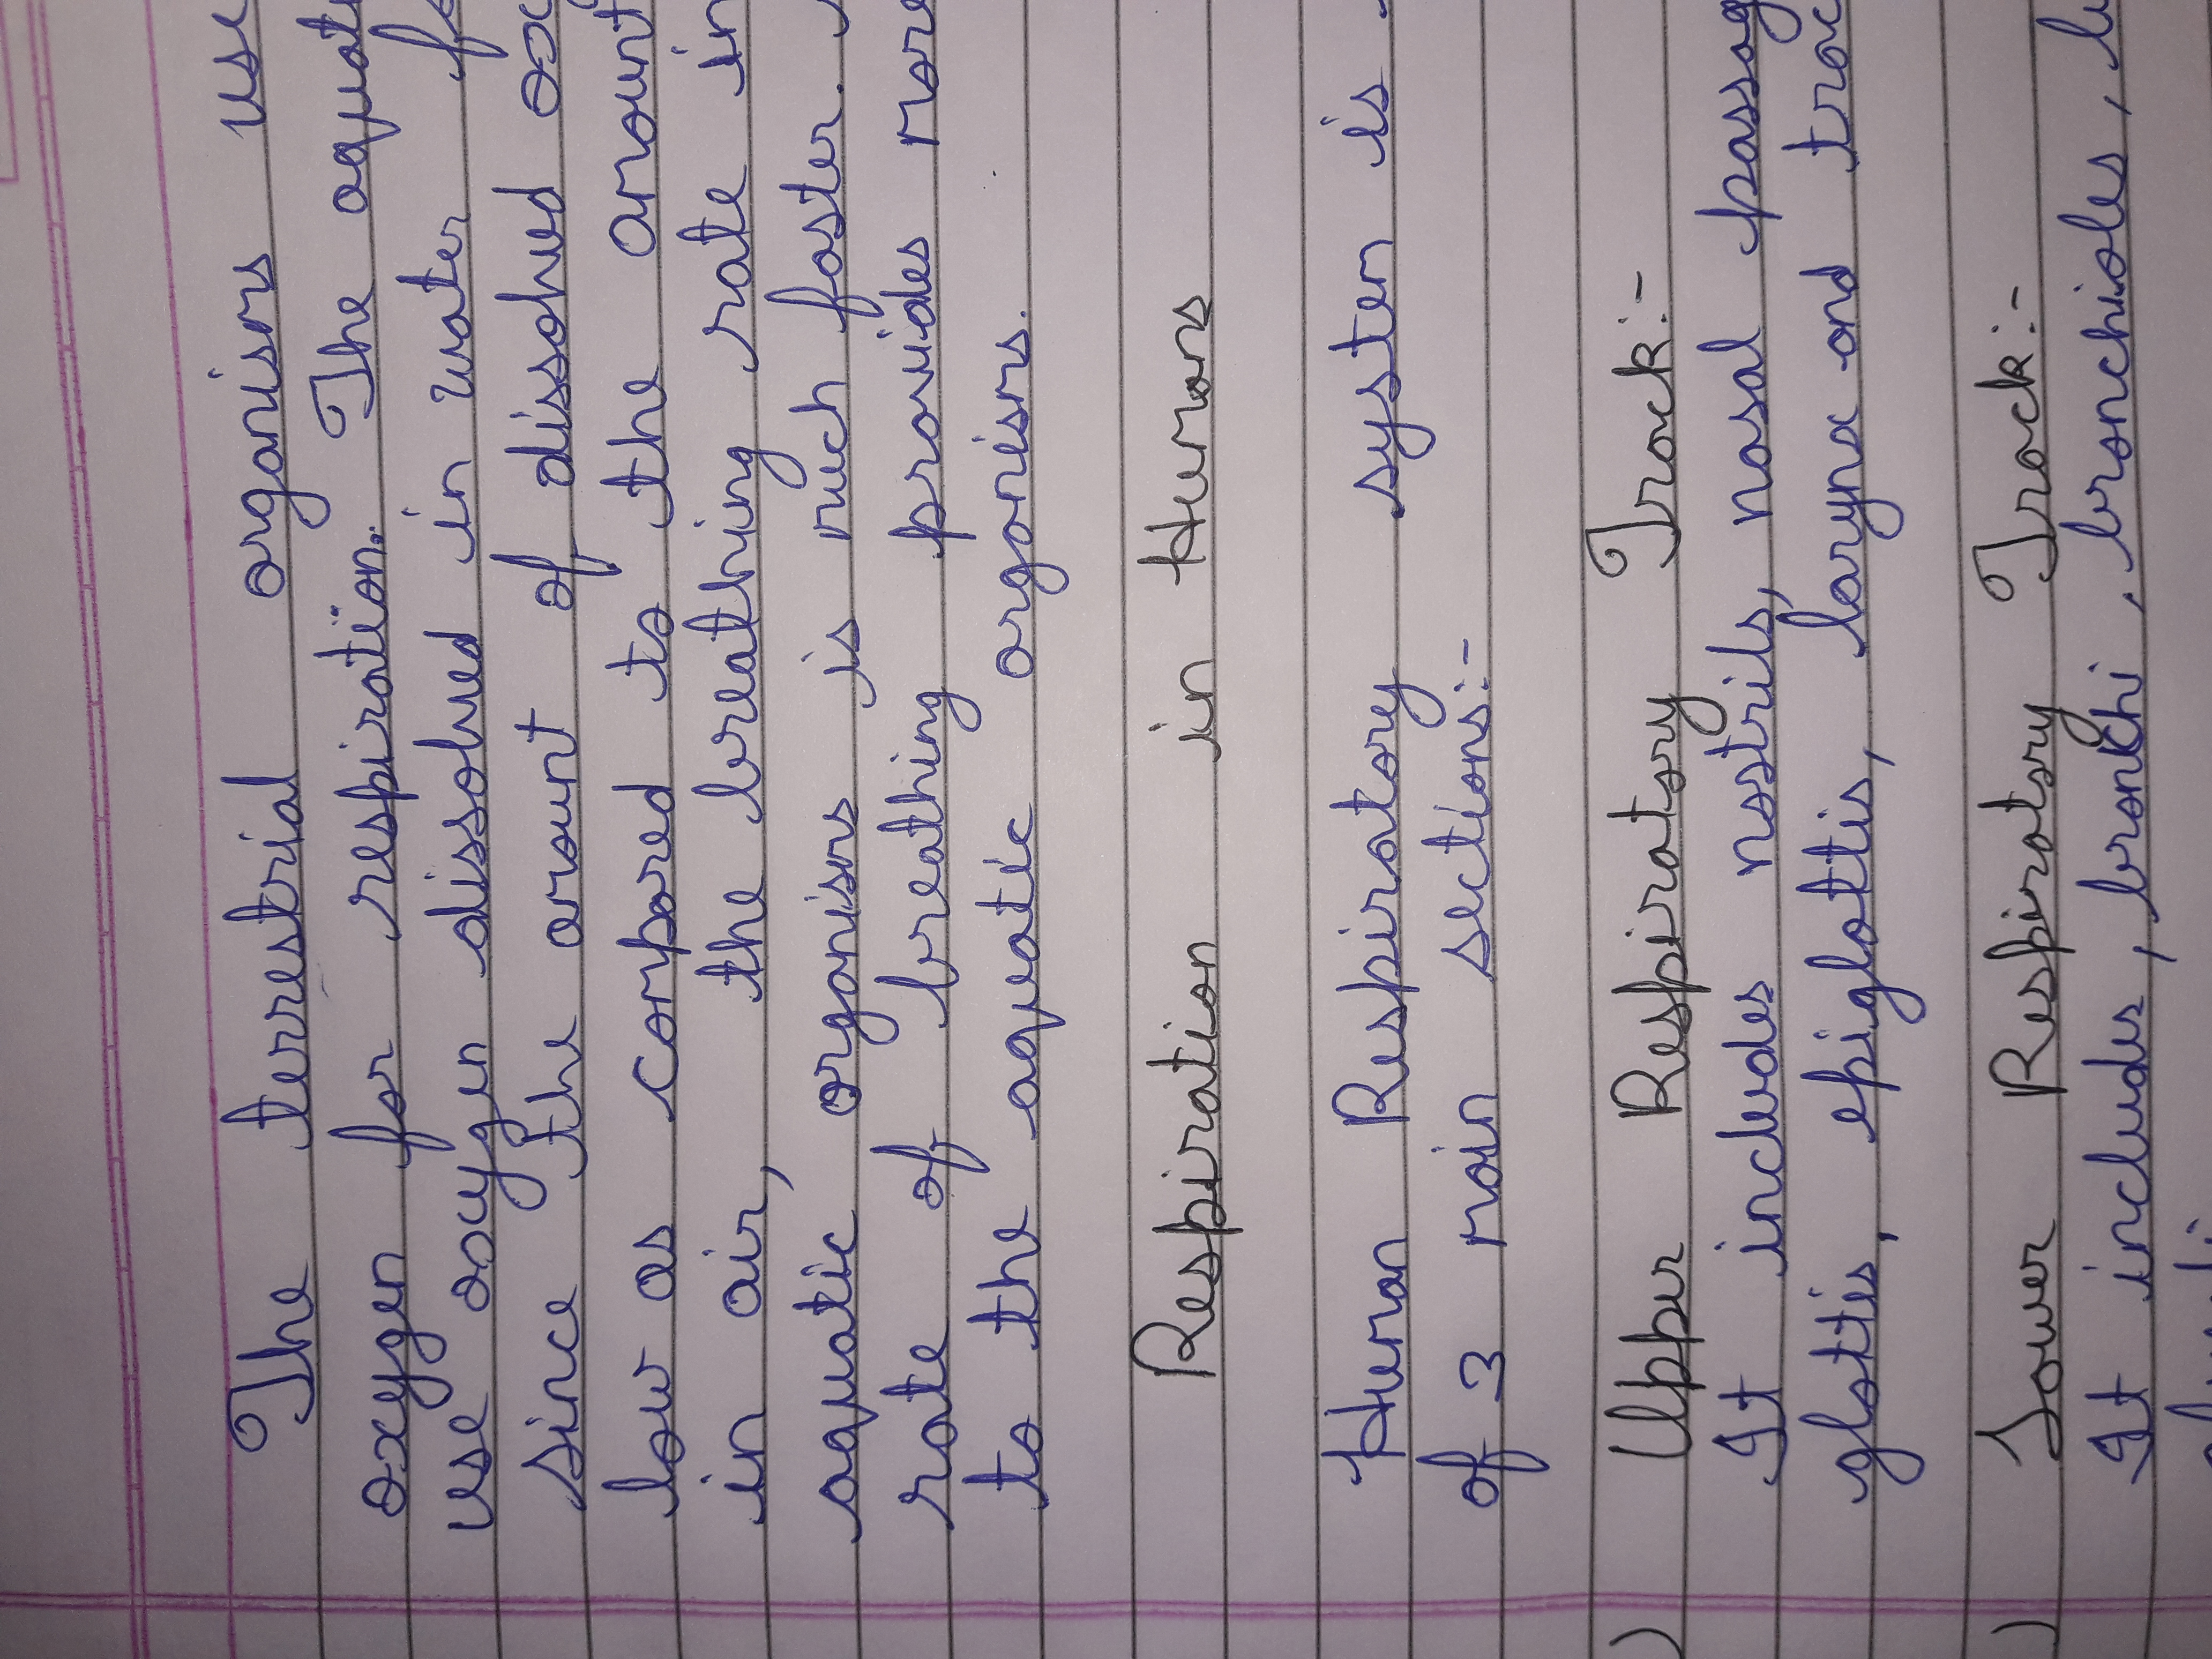 The terrestrial organisms use
oxygen for respiration. The aquati
use oxygen dissolved in water fo
since the amount of dissolved ox
low as compared to the amount
in air, the breathing rate in
aquatic organisms is much faster.
rate of breathing provides more
to the aquatic organisms.
Respiration in Humans
Human Respiratory system is
of 3 main sections:-
) Upper Respiratory Track:-
It includes nostrils, nasal passag
glottis, epiglottis, larynx and trac
) Lower Respiratory Track:-
It includes, bronchi, bronchioles, lu